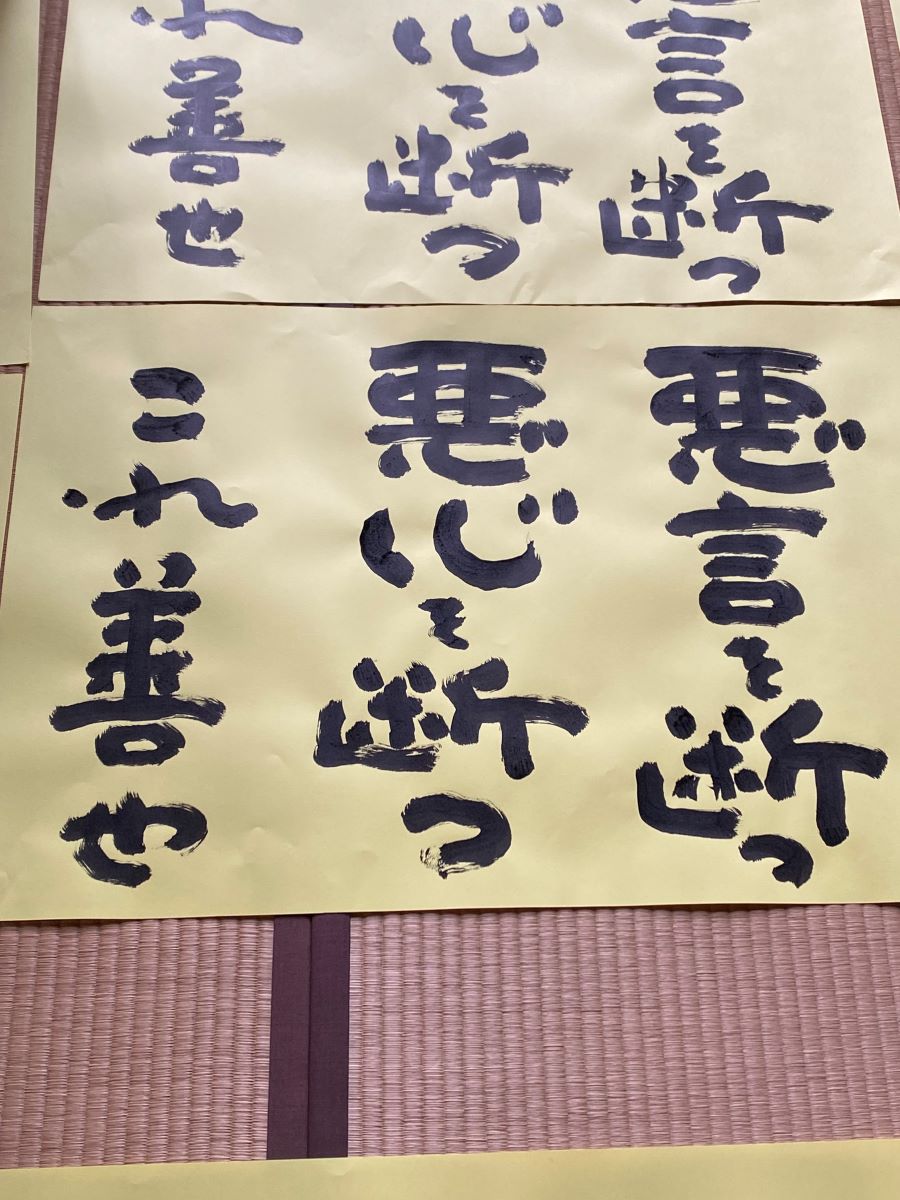 言を断つ
心を断つ
れ善也
悪言を断つ
悪心を断つ
これ善也